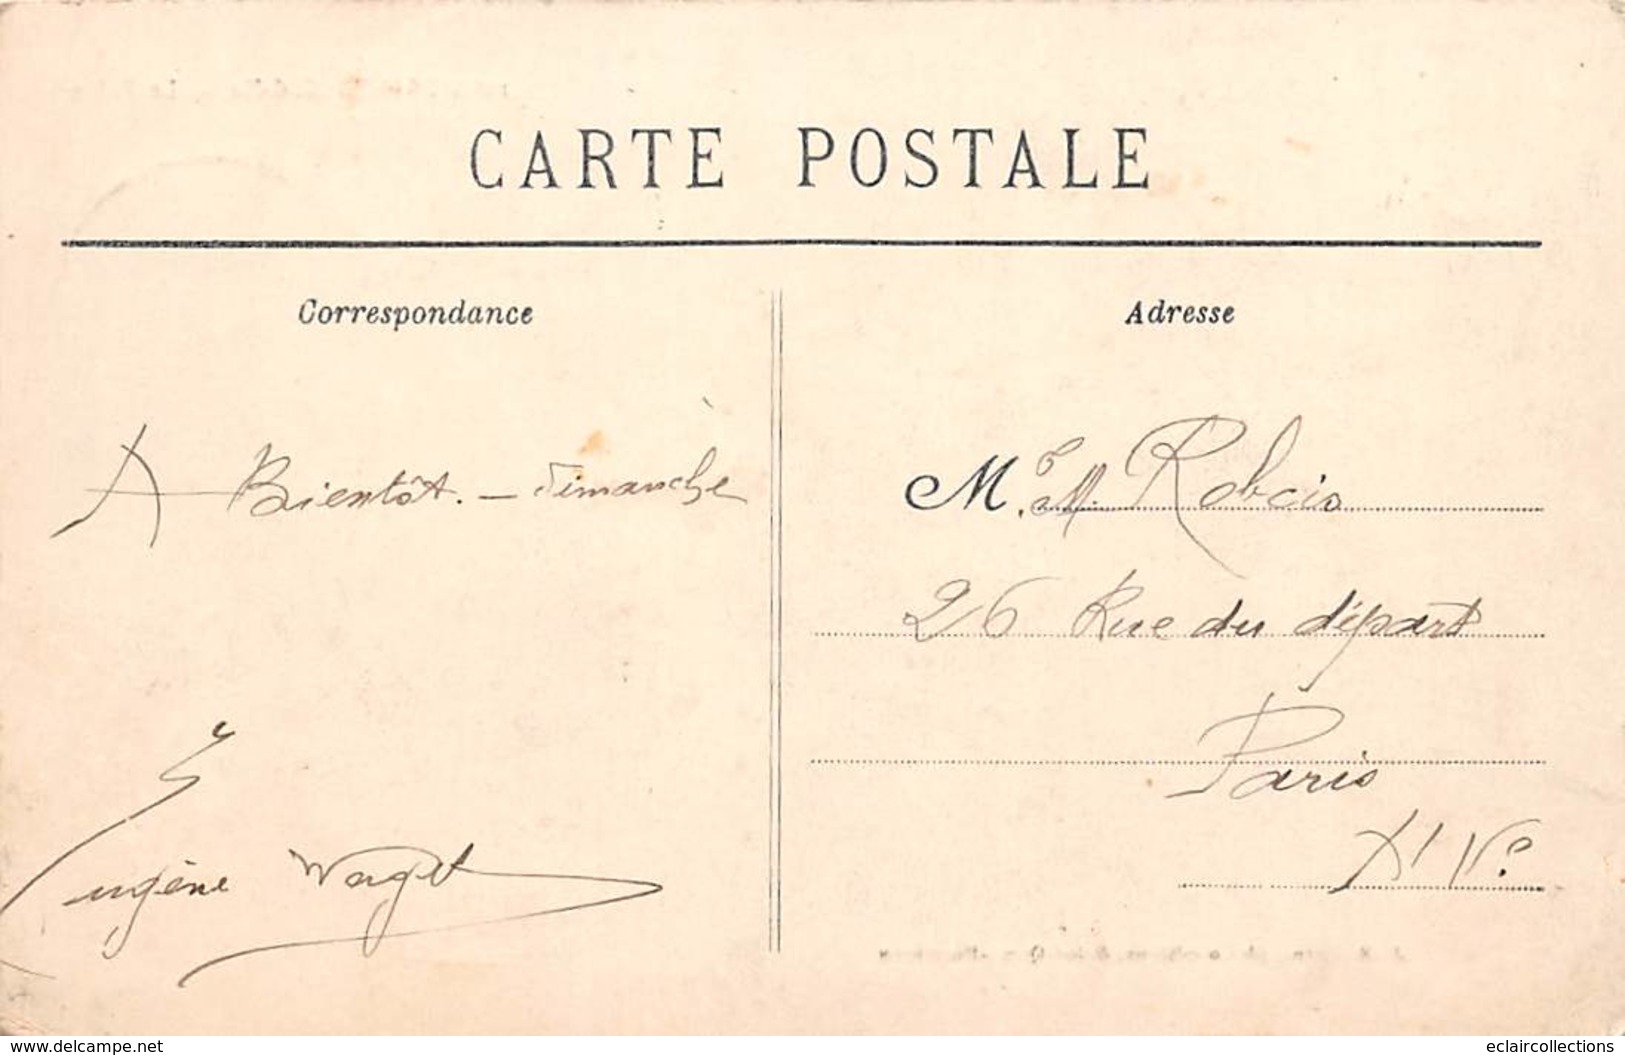 CARTE POSTALE
Correspondance
Adresse
A Bientôt. - dimanche
Eugène Waget
M. et M. Robcis
26 Rue du départ
Paris
XIVe
www.delcampe.net
eclaircollections